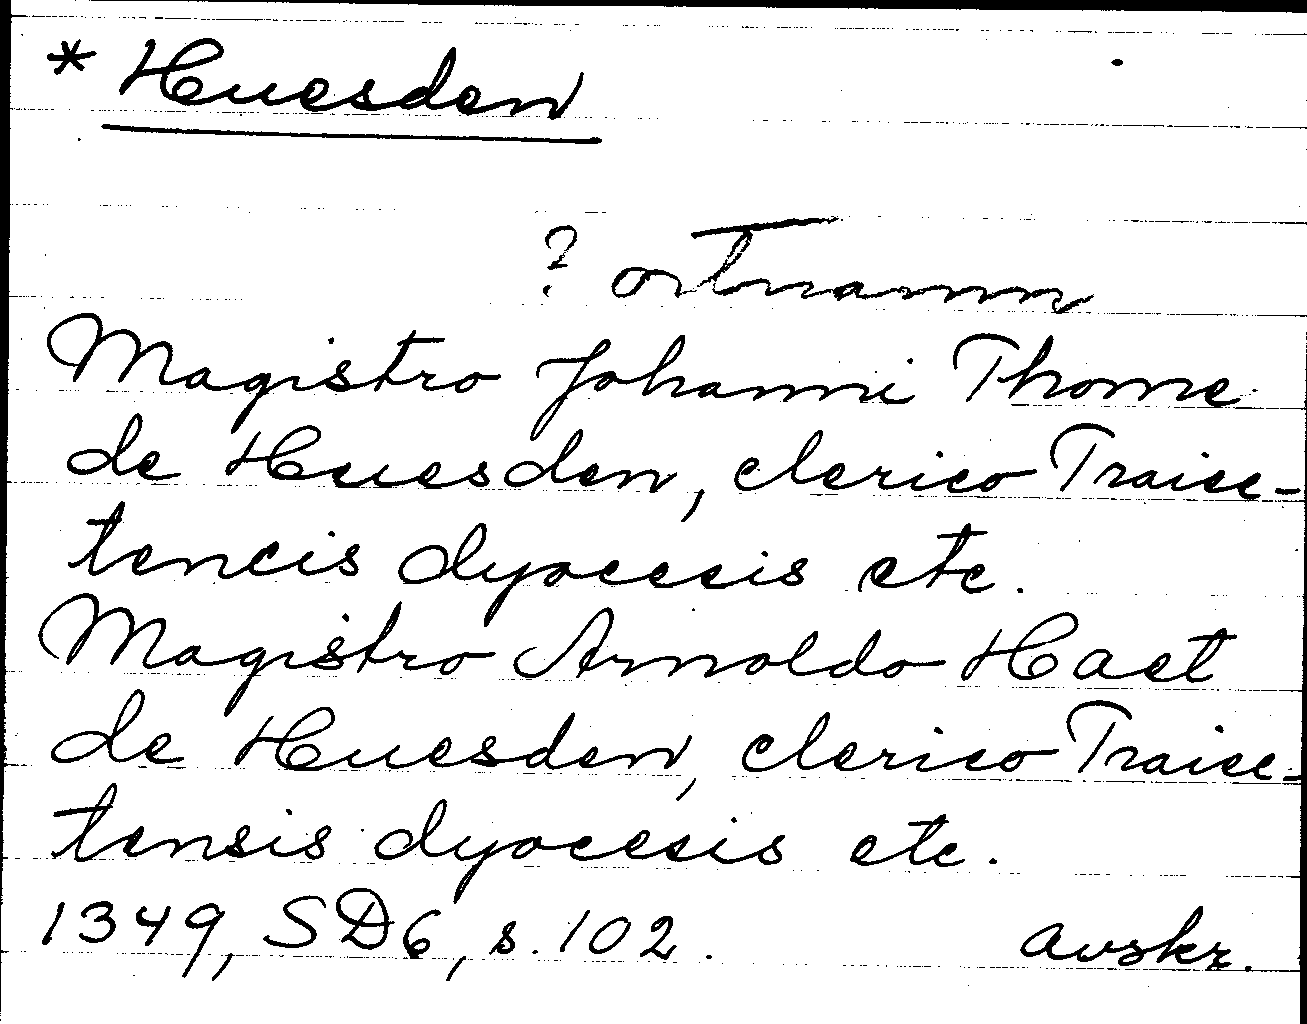 * Huesden
? ortnamn
Magistro Johanni Thome
de Huesden, clerico Traiec-
tencis dyocesis etc.
Magistro Arnoldo Haet
de Huesden, clerico Traiec-
tensis dyocesis etc.
1349, SD6, s. 102. avskr.